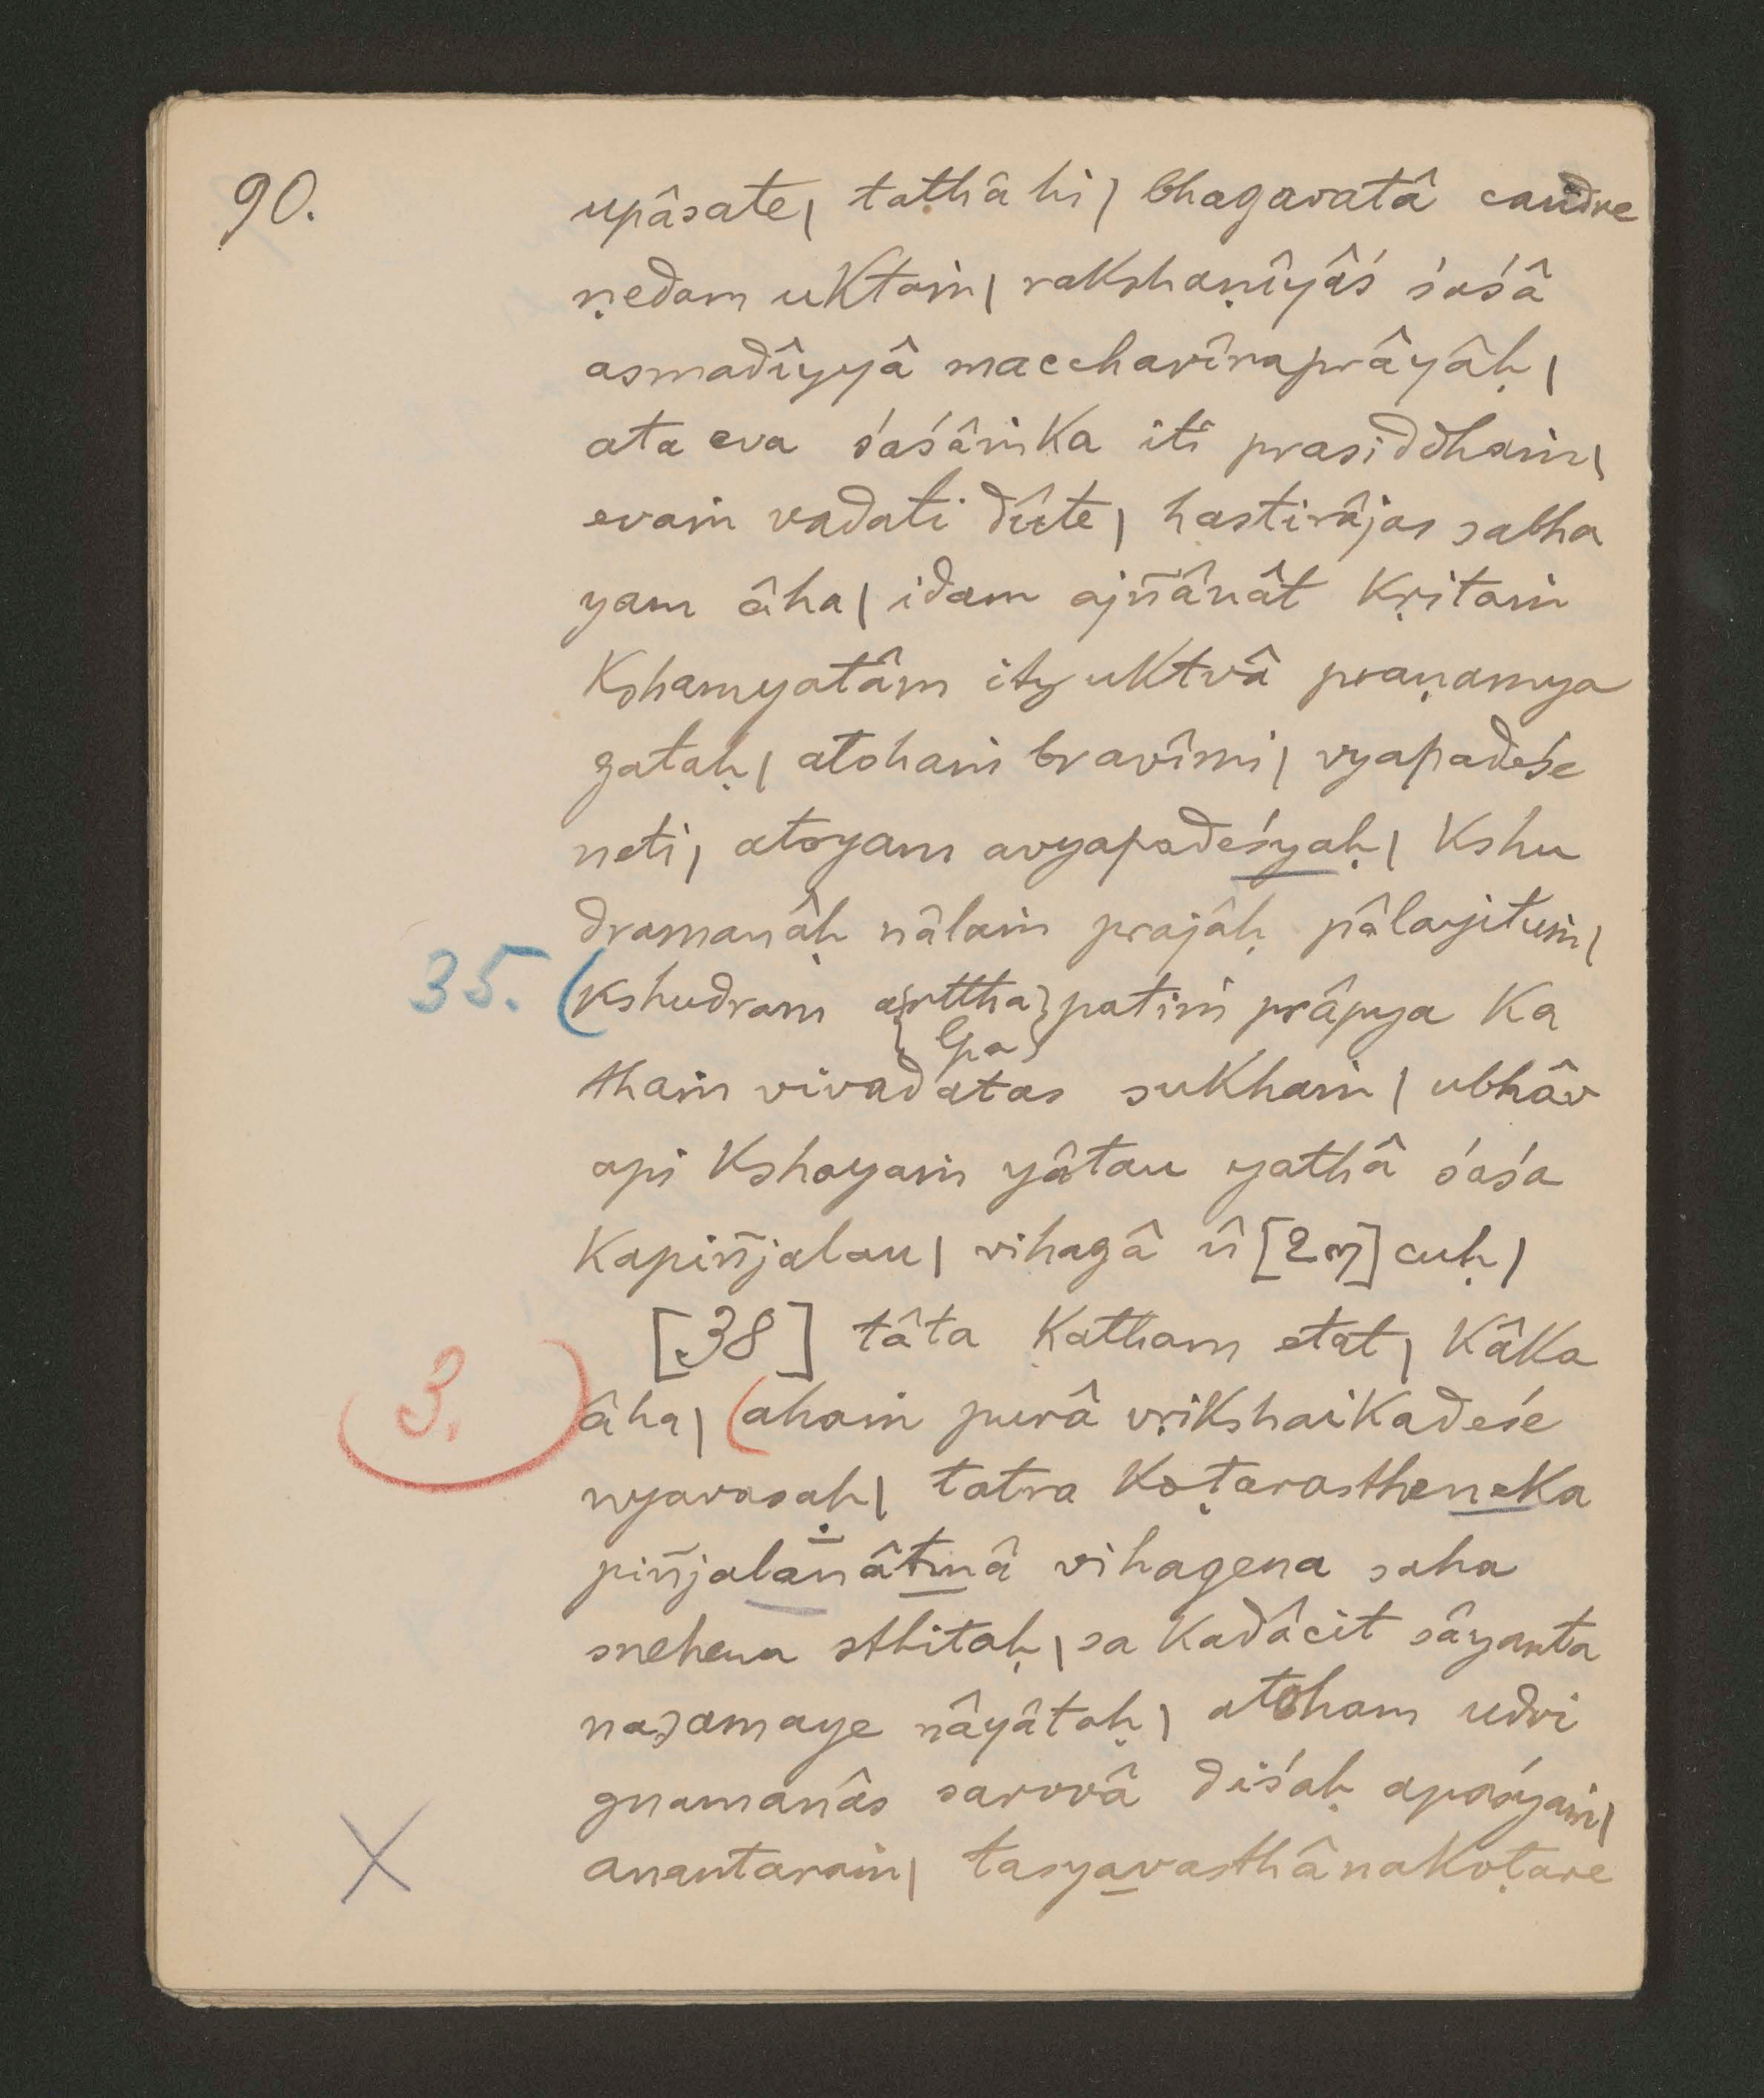 90.
upâsate, tathâ hi | bhagavatâ candre
ṇedam uktaṁ | rakshaṇîyâś śaśâ
asmadîyyâ maccharîraprâyâḥ |
ata eva śaśâṁka iti prasiddhaṁ |
evaṁ vadati dûte | hastirâjas sabha
yam âha | idam ajñânât kṛitaṁ
kshamyatâm ity uktvâ praṇamya
gataḥ | atohaṁ bravîmi | vyapadeśe
neti | atoyam avyapadeśyaḥ | kshu
dramanâḥ nâlaṁ prajâḥ pâlayituṁ |
35. (kshudram a{rttha}patiṁ prâpya ka
{lpa}
thaṁ vivadatas sukhaṁ | ubhâv
api kshayaṁ yâtau yathâ śaśa
kapiñjalau | vihagâ û [2ๆ] cuḥ |
[38] tâta katham etat | kâka
3. âha | (ahaṁ purâ vṛikshaikadeśe
nyavasaḥ | tatra koṭarastheneka
piñjalanâtmâ vihagena saha
snehena sthitaḥ | sa kadâcit sâyanta
nasamaye nâyâtaḥ | atoham udvi
gnamanâs sarvvâ diśaḥ apaśyaṁ |
X anantaraṁ | tasyavasthânakoṭare